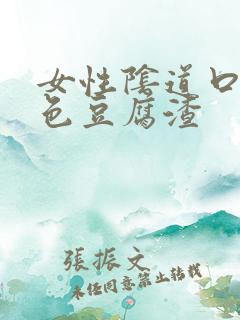 女性陰道口
色豆腐渣
張振文
未任同意禁止转载